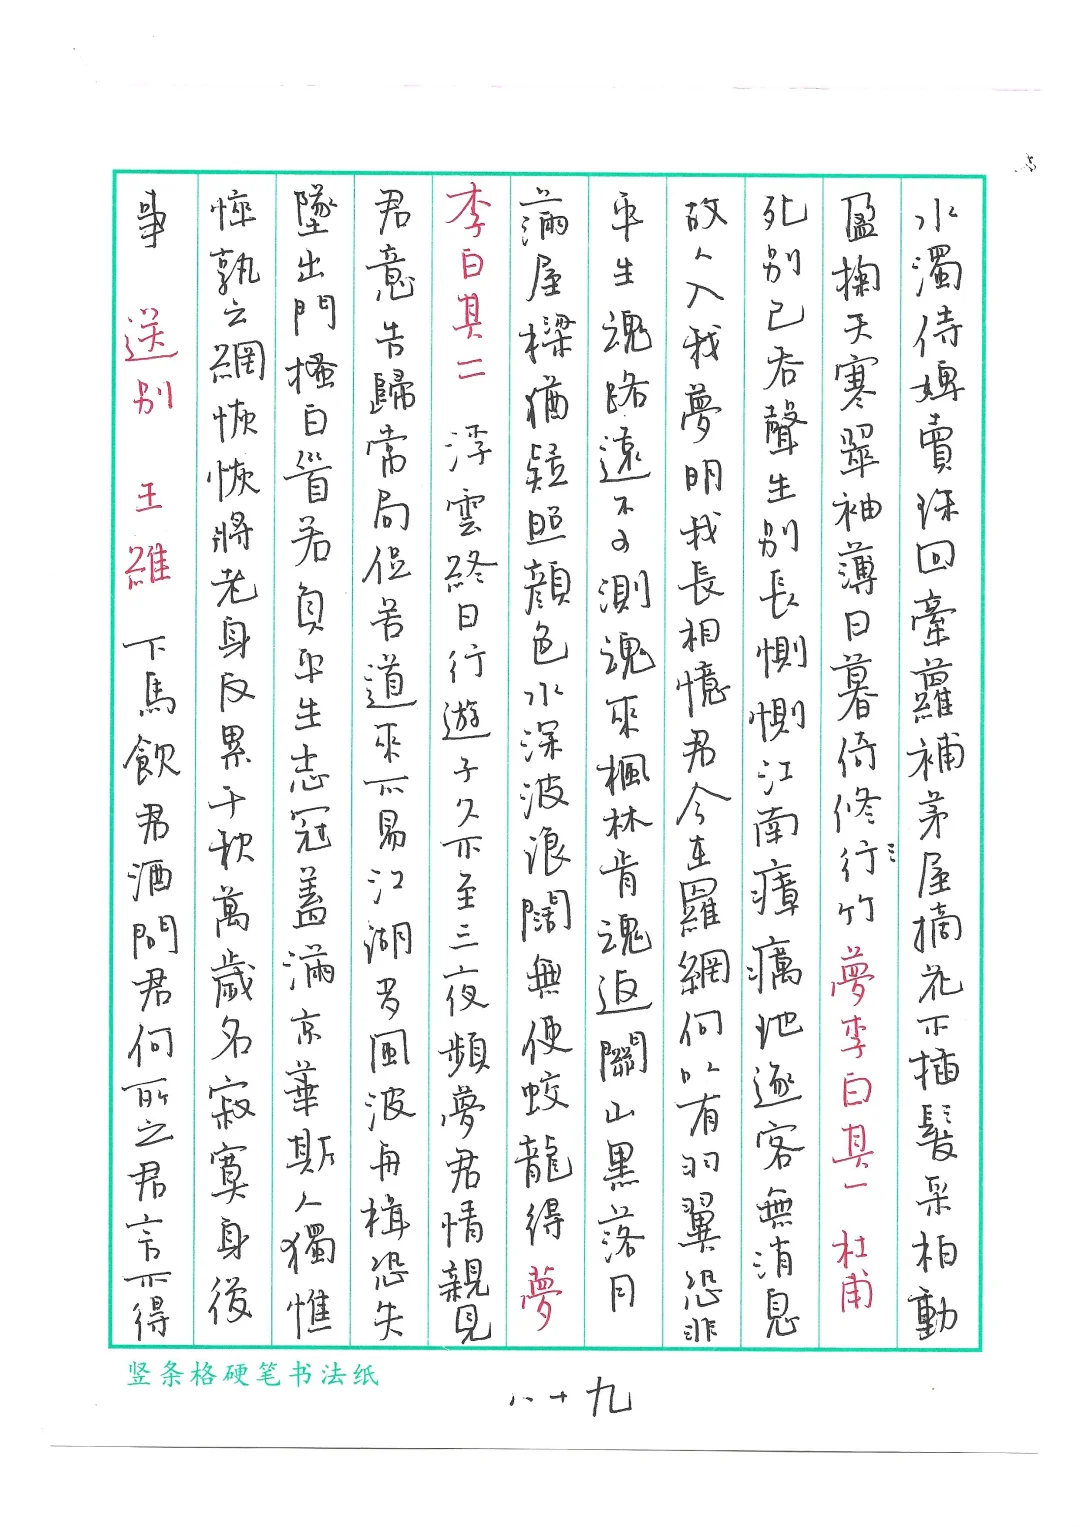 水濁侍婢賣珠回牽蘿補茅屋摘花不插髮采柏動
盈掬天寒翠袖薄日暮倚修行竹夢李白其一 杜甫
死別已吞聲生別長惻惻江南瘴癘地逐客無消息
故人入我夢明我長相憶君今在羅網何以有羽翼恐非
平生魂路遠不可測魂來楓林青魂返關山黑落月
滿屋樑猶疑照顏色水深波浪闊無使蛟龍得夢
李白其二 浮雲終日行遊子久不至三夜頻夢君情親見
君意告歸常局促苦道來不易江湖多風波舟楫恐失
墜出門搔白首若負平生志冠蓋滿京華斯人獨憔
悴孰云網恢恢將老身反累千秋萬歲名寂寞身後
事 送別 王維 下馬飲君酒問君何所之君言不得
竖条格硬笔书法纸
八十九